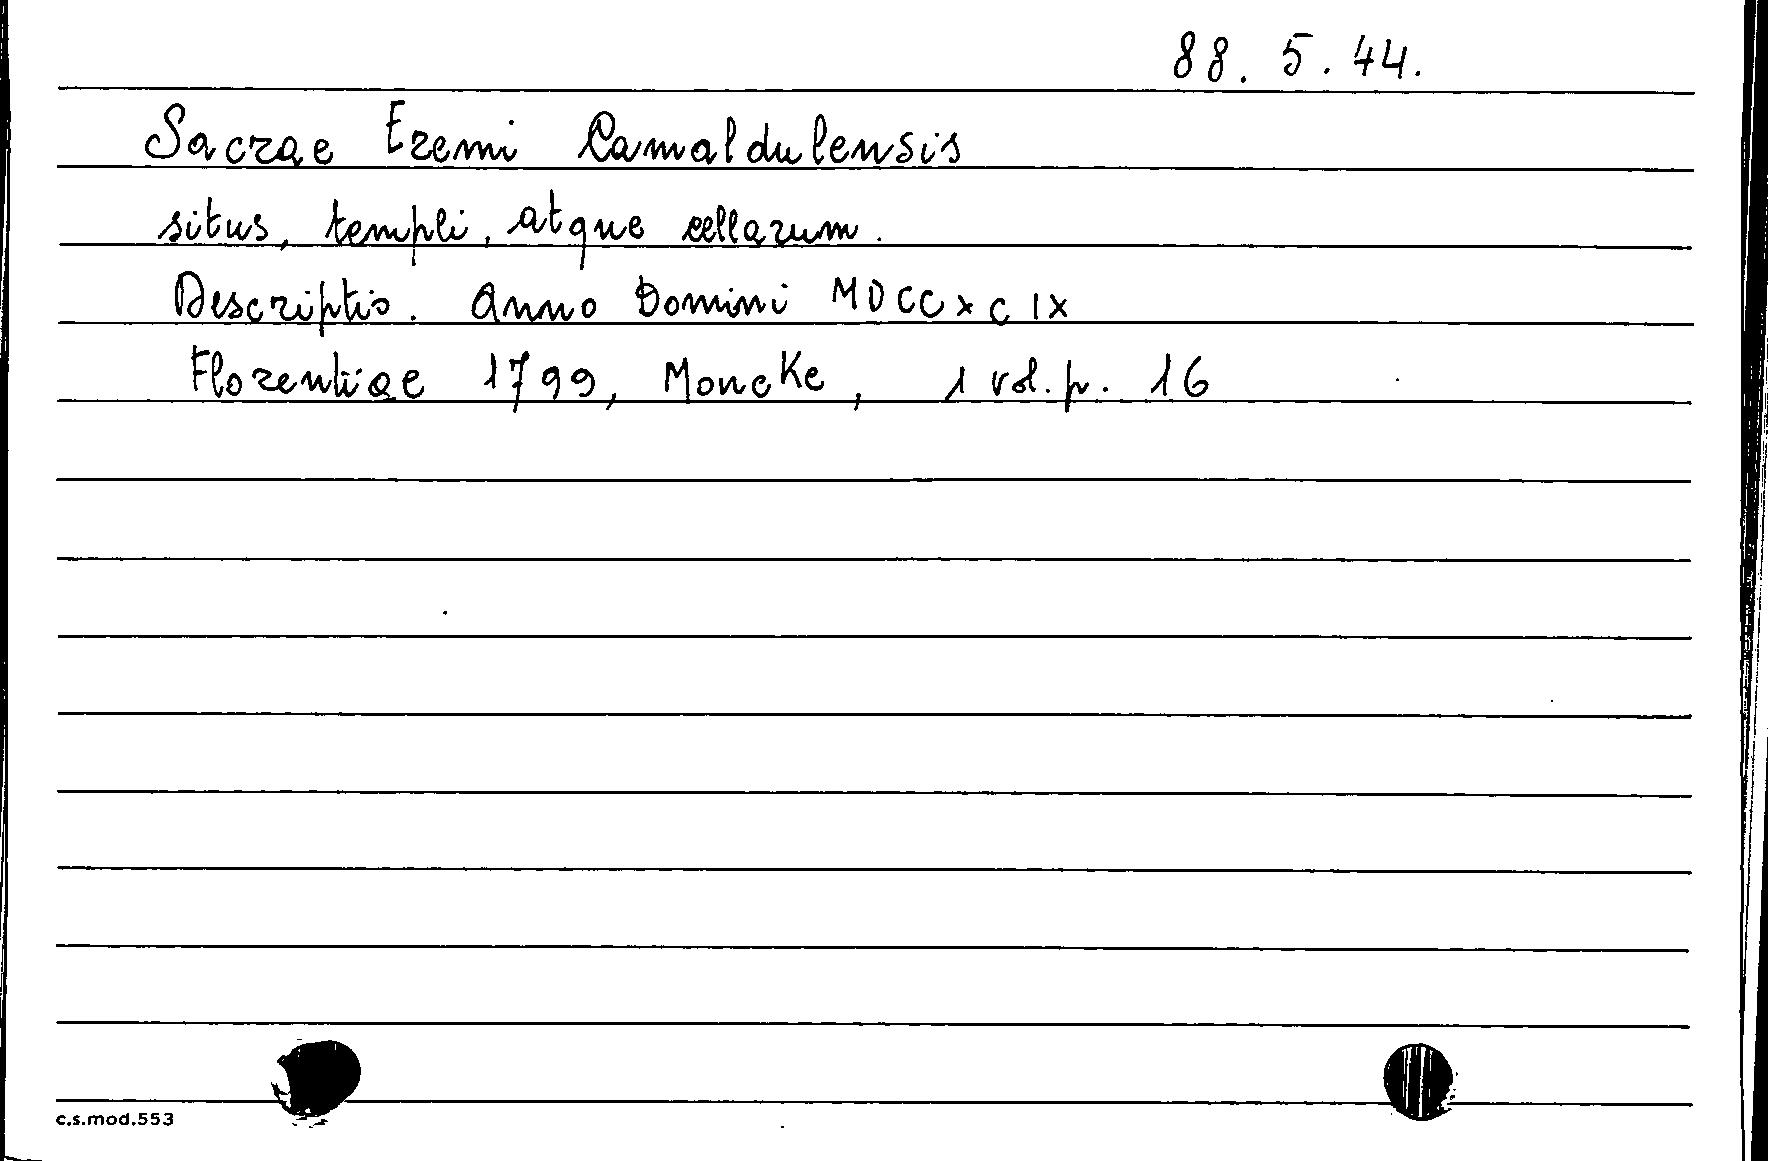 88. 5. 44.
Sacrae Eremi Camaldulensis
situs, templi, atque cellarum.
Descriptio. Anno Domini MDCCXCIX
Florentiae 1799, Moucke, 1 vol. p. 16
c.s.mod.553